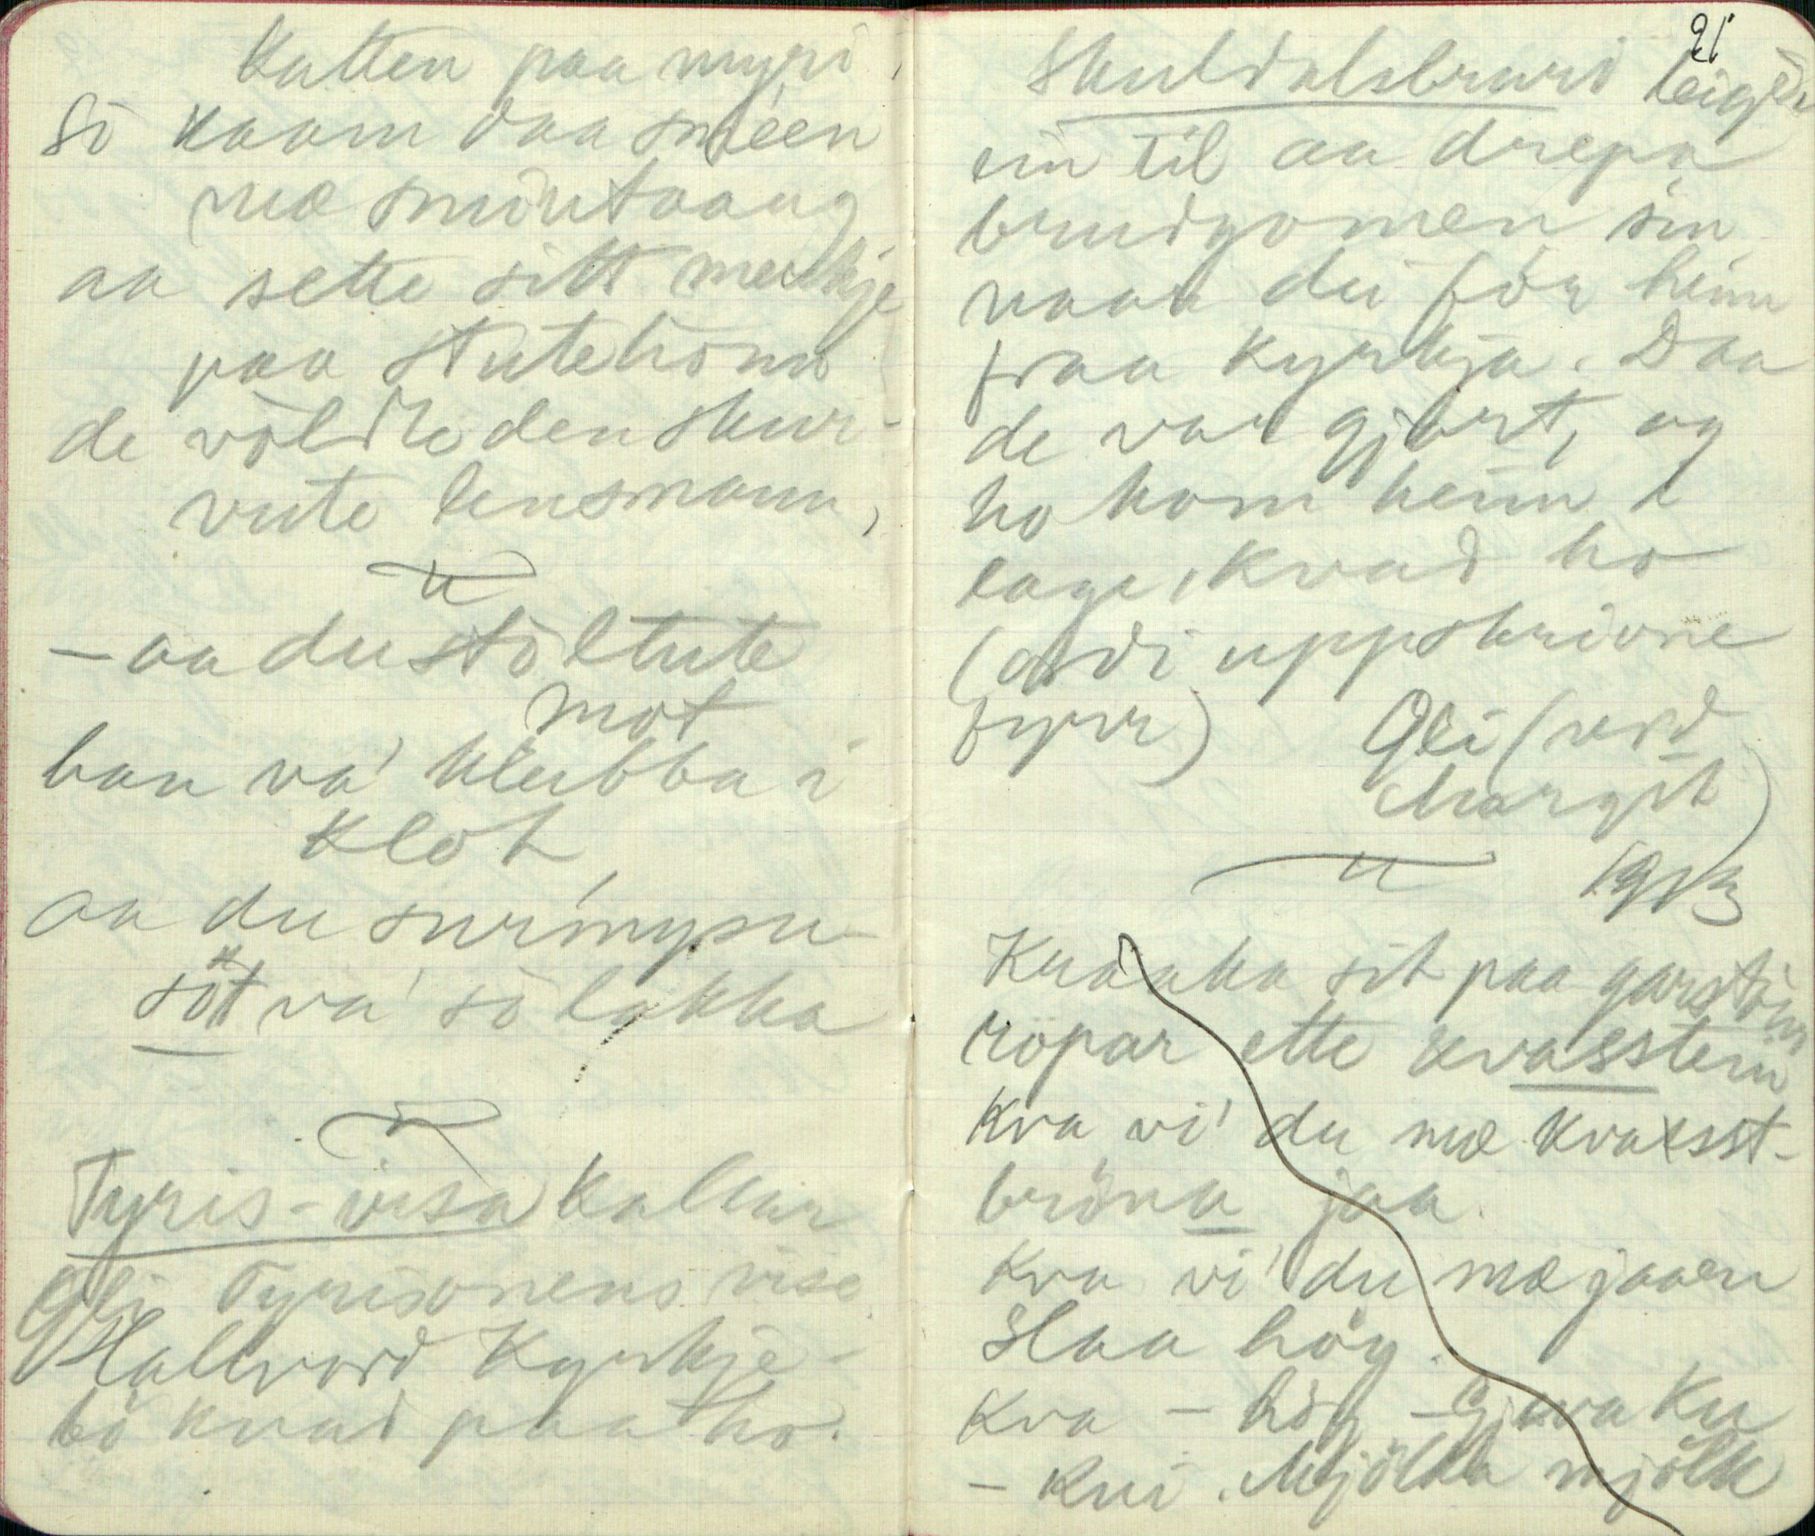 Katten paa myri
So kaam daa smeen
mæ smiutaang
aa sette sitt merkje
paa stutehonn
de völdte den skur-
vute lensmann,
– aa du stöltute
mot
han va' klubba i
klot
aa du surmysu-
söt va' so lakka
Tyris-visa kallar
Gli Tyrisonens vise
Hallvord Kyrkje-
bö kvad paa ho.
21
Skuldalsbruri leigde
ein til aa drepa
brudgomen sin
naar dei för heim
fraa kyrkja. Daa
de var gjort, og
ho kom heim i
laga, kvad ho
(ordi uppskrivne
fyrr) Gli (ved
Margit)
1913
Kraaka sit paa garstöur
röpar ette kvasstein
Kva vi' du mæ kvasst-
bröna jaa.
Kva vi' du mæ jaaen
Slaa höy.
Kva – höy – Gjeva Ku
– Kui. Mjölka mjölk